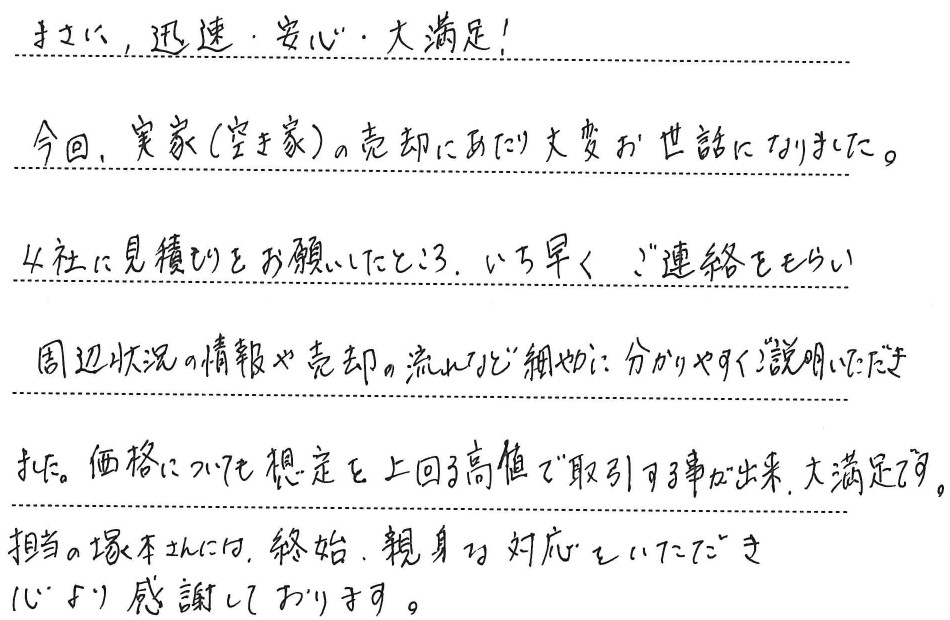 まさに、迅速・安心・大満足!
今回、実家(空き家)の売却にあたり大変お世話になりました。
4社に見積もりをお願いしたところ、いち早く ご連絡をもらい
周辺状況の情報や売却の流れなど細やかに分かりやすくご説明いただき
ました。価格についても想定を上回る高値で取引する事が出来、大満足です。
担当の塚本さんには、終始、親身な対応をいただき
心より感謝しております。